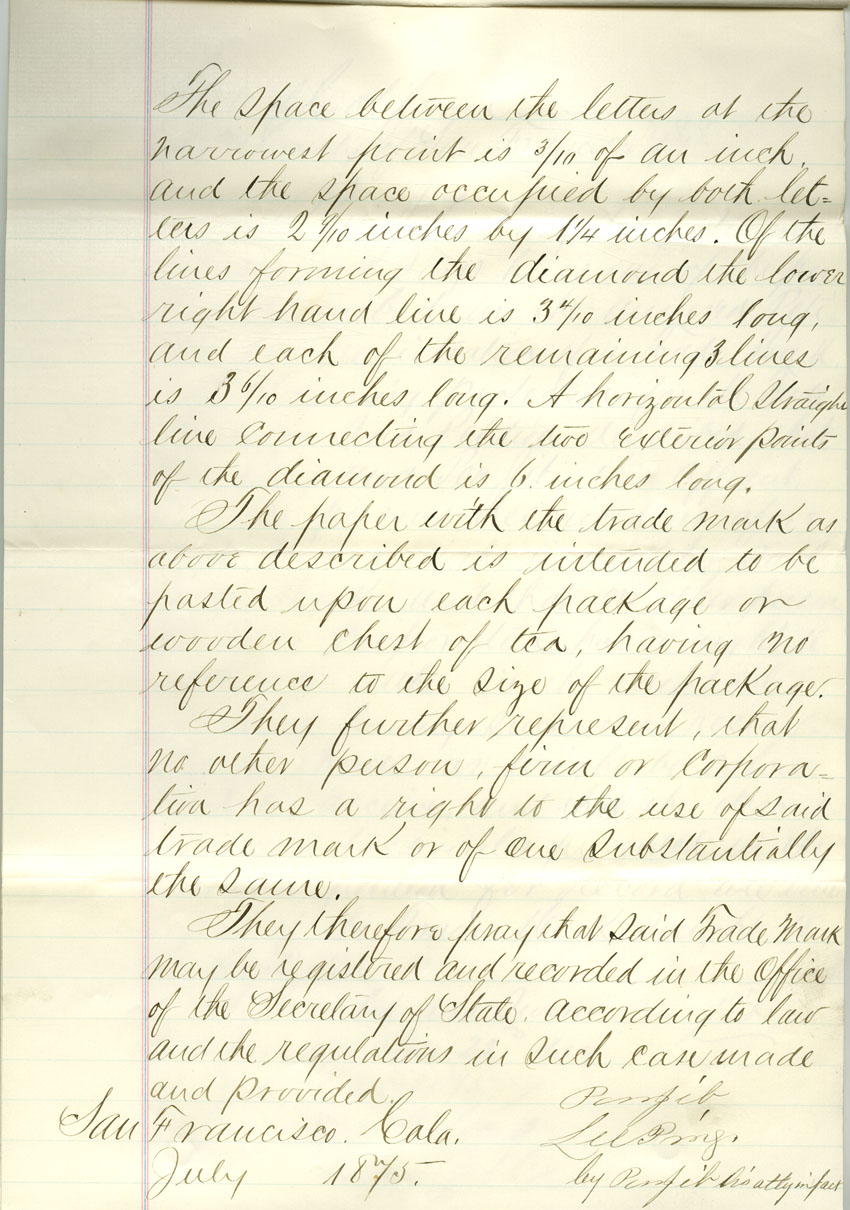 The space between the letters at the
narrowest point is 3/10 of an inch.
and the space occupied by both let=
ters is 2 9/10 inches by 1 1/4 inches. Of the
lines forming the diamond the lower
right hand line is 3 4/10 inches long,
and each of the remaining 3 lines
is 3 6/10 inches long. A horizontal straight
line connecting the two exterior points
of the diamond is 6. inches long.
The paper with the trade mark as
above described is intended to be
pasted upon each package or
wooden chest of tea, having no
reference to the size of the package.
They further represent, that
no other person, firm or Corpora=
tion has a right to the use of said
trade mark or of one substantially
the same.
They therefore pray that said Trade Mark
may be registered and recorded in the Office
of the Secretary of State. according to law
and the regulations in such case made
and provided.
San Francisco. Cala.
July 1875.
Lee Ping.
by his atty in fact